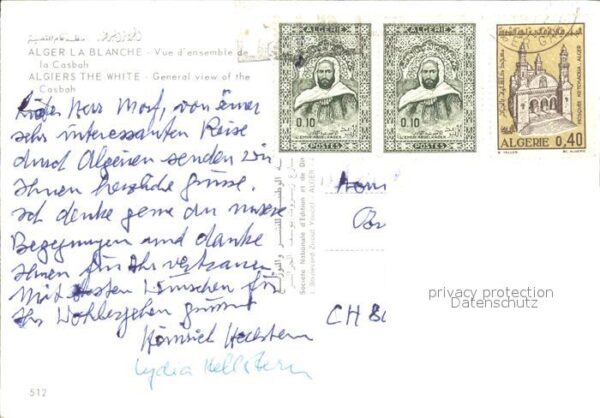 ALGER LA BLANCHE - Vue d'ensemble de
la Casbah
ALGIERS THE WHITE - General view of the
Casbah
Lieber Herr Morf, von einer
sehr interessanten Reise
durch Algerien senden wir
Ihnen herzliche Grüsse.
Ich denke gerne an unsere
Begegnungen und danke
Ihnen für Ihr Vertrauen
Mit besten Wünschen für
Ihr Wohlergehen grüsst
Heinrich Hellstern
Lydia Hellstern
512
Société Nationale d'Edition et de Di
1, Boulevard Zirout Youcef - ALGER
ALGERIE
0.10
POSTES
ALGERIE
0.10
POSTES
MOSQUEE KETCHAOUA - ALGER
ALGERIE 0,40
CH 80
privacy protection
Datenschutz